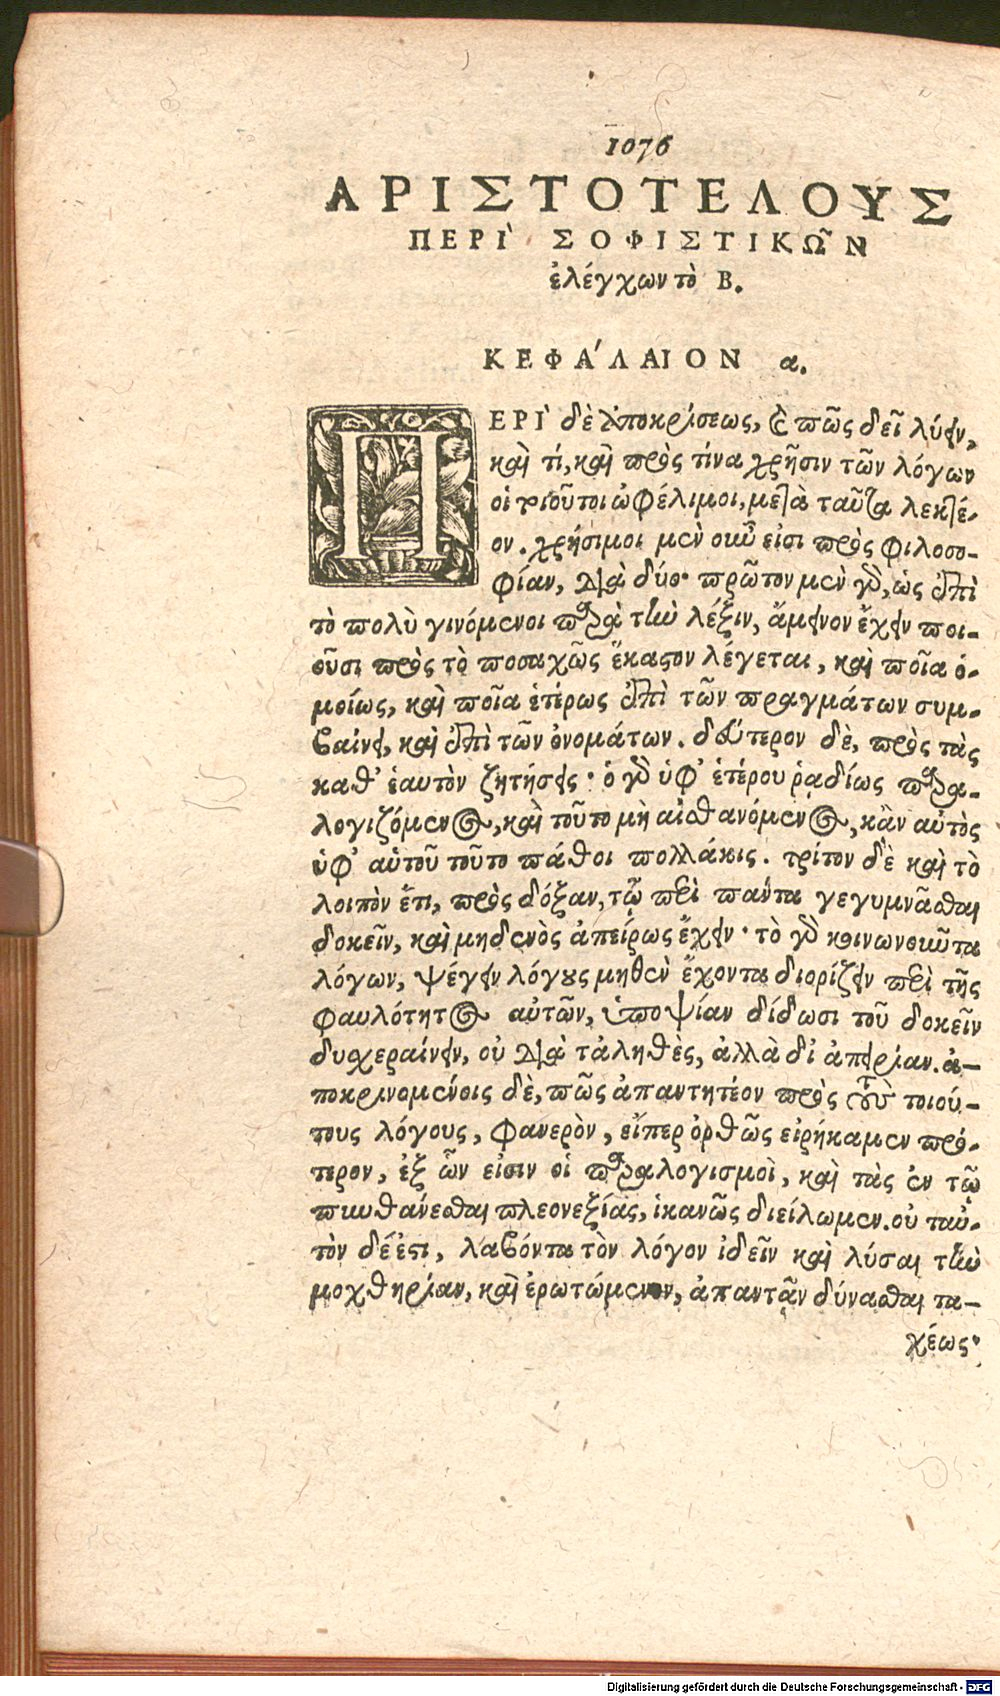 1076
ΑΡΙΣΤΟΤΕΛΟΥΣ
ΠΕΡῚ ΣΟΦΙΣΤΙΚΩ͂Ν
ἐλέγχων τὸ Β.
ΚΕΦΑ΄ΛΑΙΟΝ α.
ΠΕΡῚ δὲ ἀποκρίσεως, καὶ πῶς δεῖ λύειν,
καὶ τί, καὶ πρὸς τίνα χρῆσιν τῶν λόγων
οἱ τοιοῦτοι ὠφέλιμοι, μετὰ ταῦτα λεκτέ-
ον. χρήσιμοι μὲν οὖν εἰσι πρὸς φιλοσο-
φίαν, διὰ δύο· πρῶτον μὲν γὰρ, ὡς ἐπὶ
τὸ πολὺ γινόμενοι παρὰ τὴν λέξιν, ἄμεινον ἔχειν ποι-
οῦσι πρὸς τὸ ποσαχῶς ἕκαστον λέγεται, καὶ ποῖα ὁ-
μοίως, καὶ ποῖα ἑτέρως ἐπὶ τῶν πραγμάτων συμ-
βαίνει, καὶ ἐπὶ τῶν ὀνομάτων. δεύτερον δὲ, πρὸς τὰς
καθ' ἑαυτὸν ζητήσεις· ὁ γὰρ ὑφ' ἑτέρου ῥᾳδίως παρα-
λογιζόμενος, καὶ τοῦτο μὴ αἰσθανόμενος, κἂν αὐτὸς
ὑφ' αὑτοῦ τοῦτο πάθοι πολλάκις. τρίτον δὲ καὶ τὸ
λοιπὸν ἔτι, πρὸς δόξαν, τῷ περὶ πάντα γεγυμνᾶσθαι
δοκεῖν, καὶ μηδενὸς ἀπείρως ἔχειν· τὸ γὰρ κοινωνοῦντα
λόγων, ψέγειν λόγους μηθὲν ἔχοντα διορίζειν περὶ τῆς
φαυλότητος αὐτῶν, ὑποψίαν δίδωσι τοῦ δοκεῖν
δυσχεραίνειν, οὐ διὰ τἀληθὲς, ἀλλὰ δι' ἀπειρίαν. ἀ-
ποκρινομένοις δὲ, πῶς ἀπαντητέον πρὸς τοὺς τοιού-
τους λόγους, φανερὸν, εἴπερ ὀρθῶς εἰρήκαμεν πρό-
τερον, ἐξ ὧν εἰσιν οἱ παραλογισμοὶ, καὶ τὰς ἐν τῷ
πυνθάνεσθαι πλεονεξίας, ἱκανῶς διείλωμεν. οὐ ταὐ-
τὸν δέ ἐστι, λαβόντα τὸν λόγον ἰδεῖν καὶ λύσαι τὴν
μοχθηρίαν, καὶ ἐρωτώμενον, ἀπαντᾷν δύνασθαι τα-
χέως·
Digitalisierung gefördert durch die Deutsche Forschungsgemeinschaft - DFG